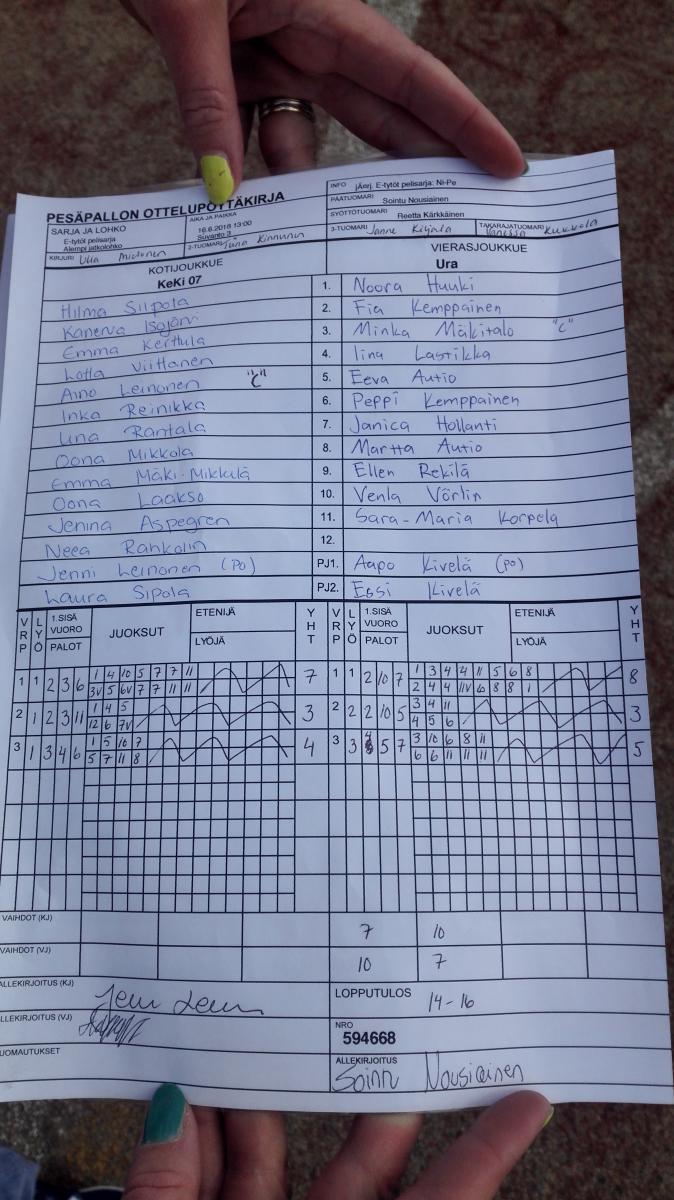 PESÄPALLON OTTELUPÖYTÄKIRJA
INFO jÄerj. E-tytöt pelisarja: Ni-Pe
PÄÄTUOMARI Sointu Nousiainen
SYÖTTÖTUOMARI Reetta Kärkkäinen
SARJA JA LOHKO E-tytöt pelisarja Alempi jatkolohko
AIKA JA PAIKKA 16.6.2018 13:00 Suvanto 3
2-TUOMARI Kinnunen
3-TUOMARI Janne
TAKARAJATUOMARI Vanessa Kukkola
KIRJURI Ulla
KOTIJOUKKUE KeKi 07
VIERASJOUKKUE Ura
Hilma Silpola 1. Noora Huuki
Kanerva Isojärvi 2. Fia Kemppainen
Emma Kerttula 3. Minka Mäkitalo "C"
Lotta Viittanen 4. Iina Lastikka
Aino Leinonen "C" 5. Eeva Autio
Inka Reinikka 6. Peppi Kemppainen
Rantala 7. Janica Hollanti
Oona Mikkola 8. Martta Autio
Emma Mäki-Mikkilä 9. Ellen Rekilä
Oona Laakso 10. Venla Vörlin
Jenina Aspegren 11. Sara-Maria Korpela
Neea 12.
Jenni Leinonen (PO) PJ1. Aapo Kivelä (po)
Laura Sipola PJ2. Essi Kivelä
VRP LYÖ 1.SISÄ VUORO PALOT JUOKSUT ETENIJÄ LYÖJÄ YHT VRP LYÖ 1.SISÄ VUORO PALOT JUOKSUT ETENIJÄ LYÖJÄ YHT
1 1 2 3 6 1 4 10 5 7 7 11 7 1 1 2 10 7 1 3 4 4 11 5 6 8 8
3V 5 6V 7 7 11 11 2 4 4 11V 6 8 8 1
2 1 2 3 11 1 4 5 3 2 2 2 10 5 3 4 11 3
12 6 7V 4 5 6
3 1 3 4 6 1 5 10 7 4 3 3 5 7 3 10 6 8 11 5
5 7 11 8 6 6 11 11 11
VAIHDOT (KJ) 7 10
VAIHDOT (VJ) 10 7
ALLEKIRJOITUS (KJ)
LOPPUTULOS 14-16
ALLEKIRJOITUS (VJ)
NRO 594668
HUOMAUTUKSET
ALLEKIRJOITUS Nousiainen